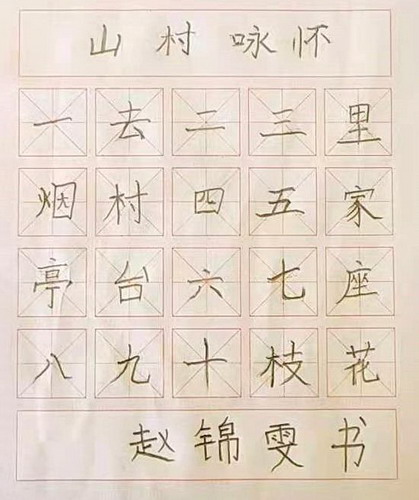 山村咏怀
一去二三里
烟村四五家
亭台六七座
八九十枝花
赵锦雯书